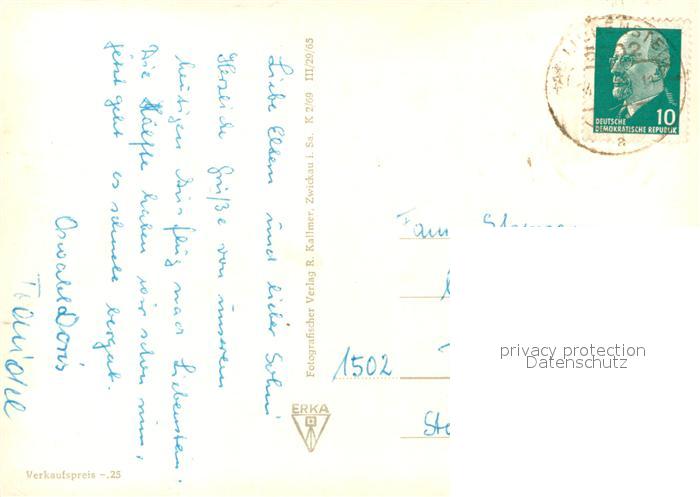 Liebe Eltern und lieber Sohn!
Herzliche Grüße von unserem
heutigen Ausflug nach Liebenstein.
Die Hälfte haben wir schon rum,
jetzt geht es schnell bergab.
Oswald Doris
Fotografischer Verlag R. Kallmer, Zwickau i. Sa. K 2/69 III/29/65
ERKA
Verkaufspreis -.25
10
DEUTSCHE
DEMOKRATISCHE REPUBLIK
a
Fam.
1502
privacy protection
Datenschutz